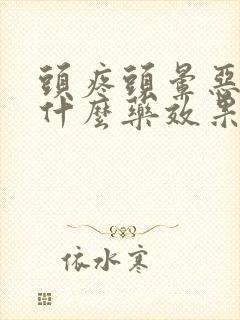 頭疼頭暈惡
什麼藥效果
依水寒